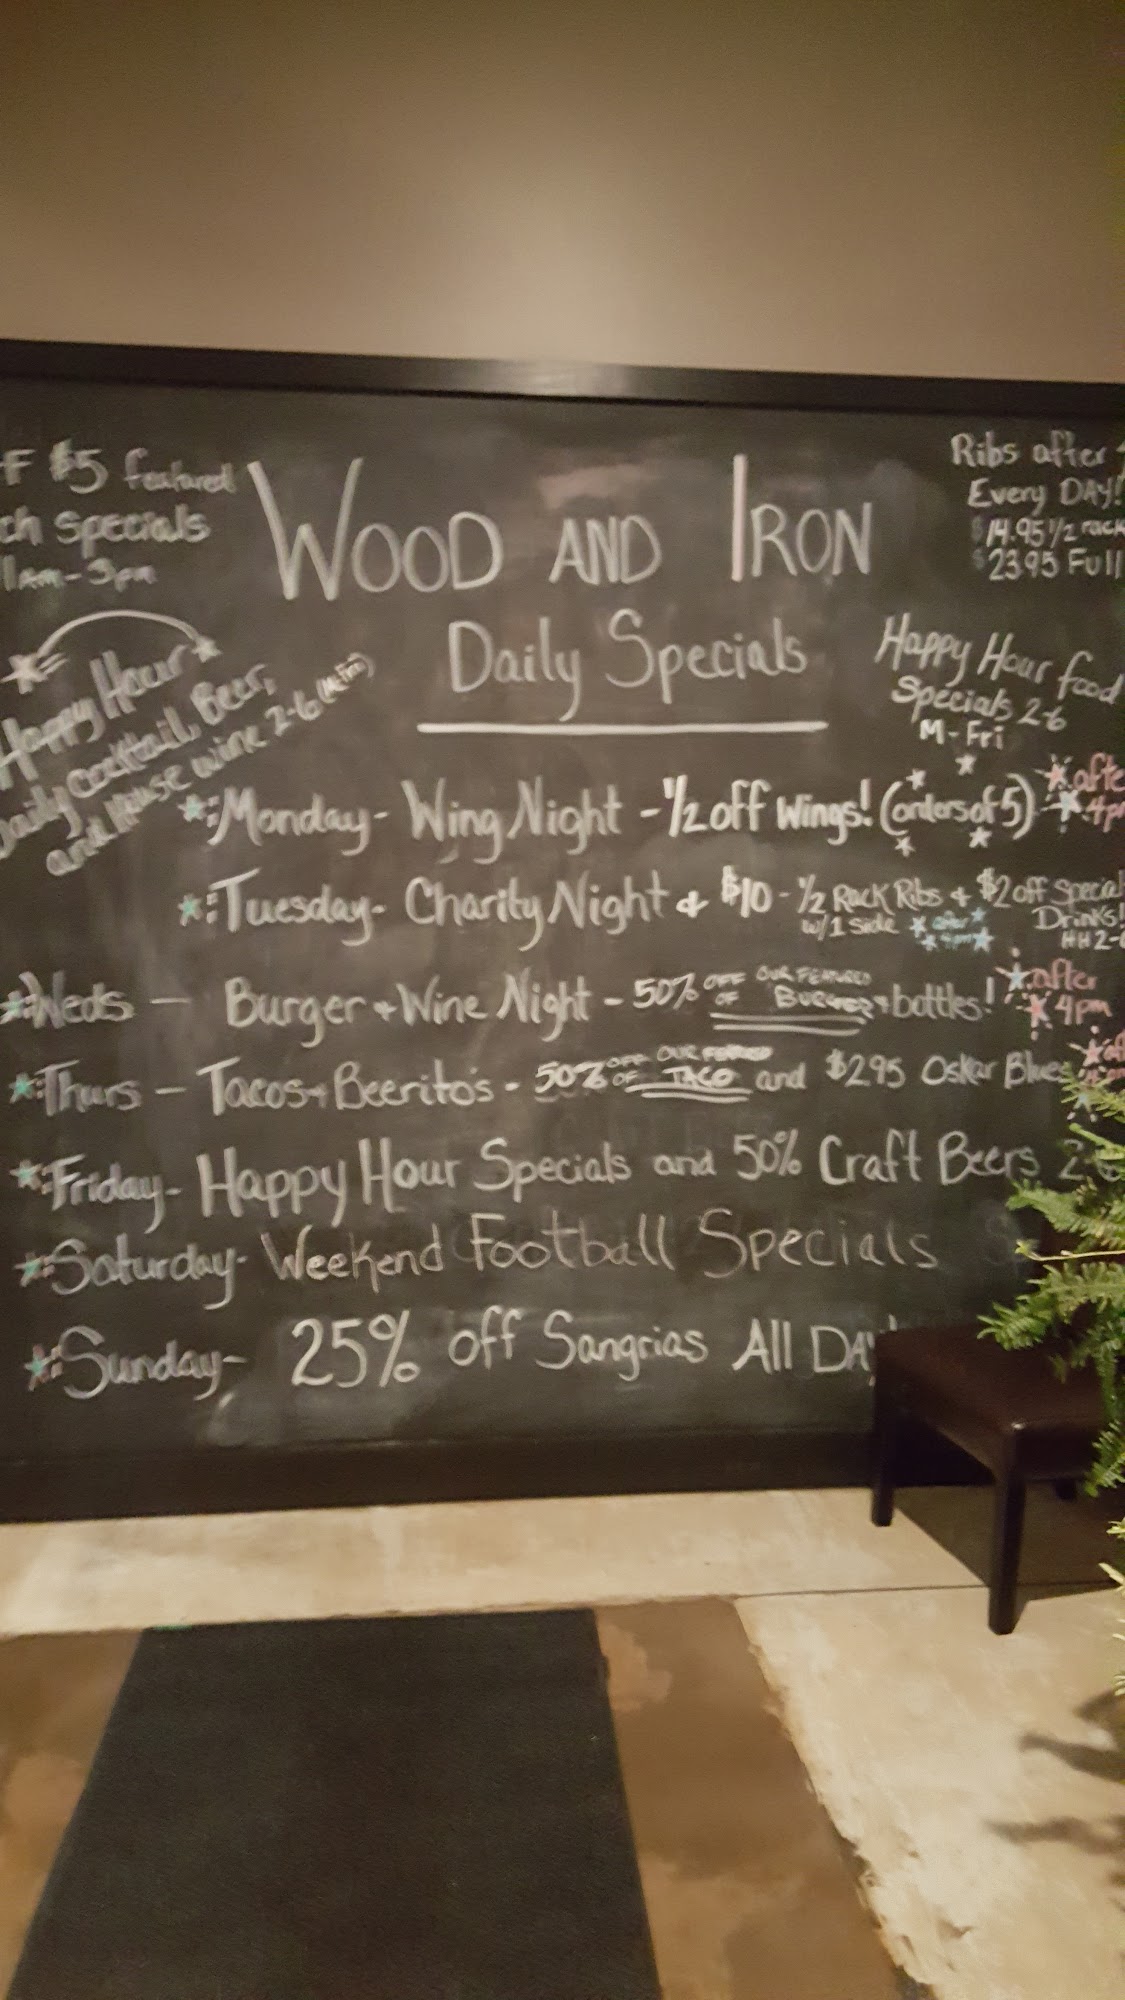 F $5 featured
ch Specials
11am-3pm
WOOD AND IRON
Daily Specials
Ribs after
Every DAY!
$14.95 1/2 rack
$23.95 Full
Happy Hour
Daily cocktail, Beer,
and House wine 2-6
Happy Hour food
Specials 2-6
M-Fri
Monday- Wing Night - 1/2 off Wings! (orders of 5) after 4pm
Tuesday- Charity Night & $10 - 1/2 Rack Ribs + $2 off Special
w/1 side after 4pm Drinks!
HH 2-
Weds - Burger + Wine Night - 50% OFF OF OUR FEATURED BURGER + bottles! after 4pm
Thurs - Tacos + Beerito's - 50% OFF OF OUR FEATURED TACO and $2.95 Oskar Blues
Friday- Happy Hour Specials and 50% Craft Beers 2-6
Saturday- Weekend Football Specials
Sunday- 25% off Sangrias All DAY